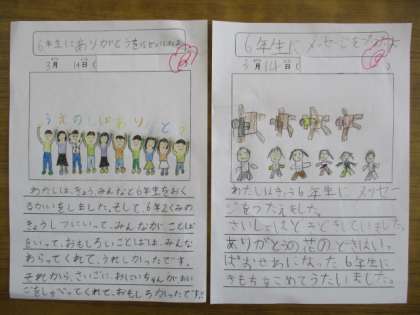 6年生にありがとうをとどけ
3月14日(
うえのしばありと
わたしは、きょう、みんなと6年生をおく
るかいをしました。そして、6年2くみの
きょうしつにいって、みんながことば
をいって、おもしろいことばは、みんな
わらってくれて、うれしかったです。
それから、さいごに、おにいちゃんがおに
ごをしゃべってくれて、おもしろかったです。
6年生にメッセージを
3月14日(
わたしはきょう6年生にメッセー
ジをつたえました。
さいしょはとてもどきどきしていました。
ありがとうの花のときはい
ぱおせわになった6年生に
きもちをこめてうたいました。